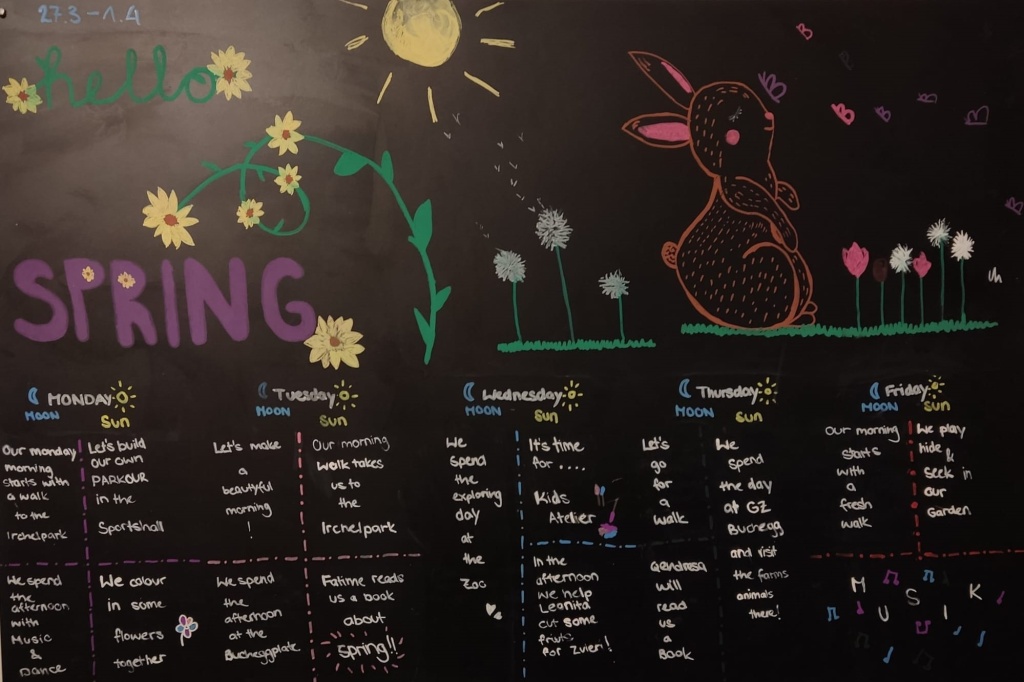 27.3 - 1.4
hello
SPRING
MONDAY
MOON
Sun
Our monday
morning
starts with
a walk
to the
Irchelpark
Let's build
our own
PARKOUR
in the
Sportshall
We spend
the
afternoon
with
Music
&
Dance
We colour
in some
flowers
together
Tuesday
MOON
Sun
Let's make
a
beautyful
morning
!
Our morning
walk takes
us to
the
Irchelpark
We spend
the
afternoon
at the
Bucheggplatz
Fatime reads
us a book
about
Spring!!
Wednesday
MOON
Sun
We
spend
the
exploring
day
at
the
Zoo
It's time
for ....
Kids
Atelier
In the
afternoon
we help
Leanita
cut some
fruits
for Zvieri!
Thursday
MOON
Sun
Let's
go
for
a
walk
Qendresa
will
read
us
a
Book
We
spend
the day
at GZ
Buchegg
and visit
the farms
animals
there!
Friday
MOON
Sun
Our morning
starts
with
a
fresh
walk
We play
hide &
Seek in
our
Garden
MUSIK